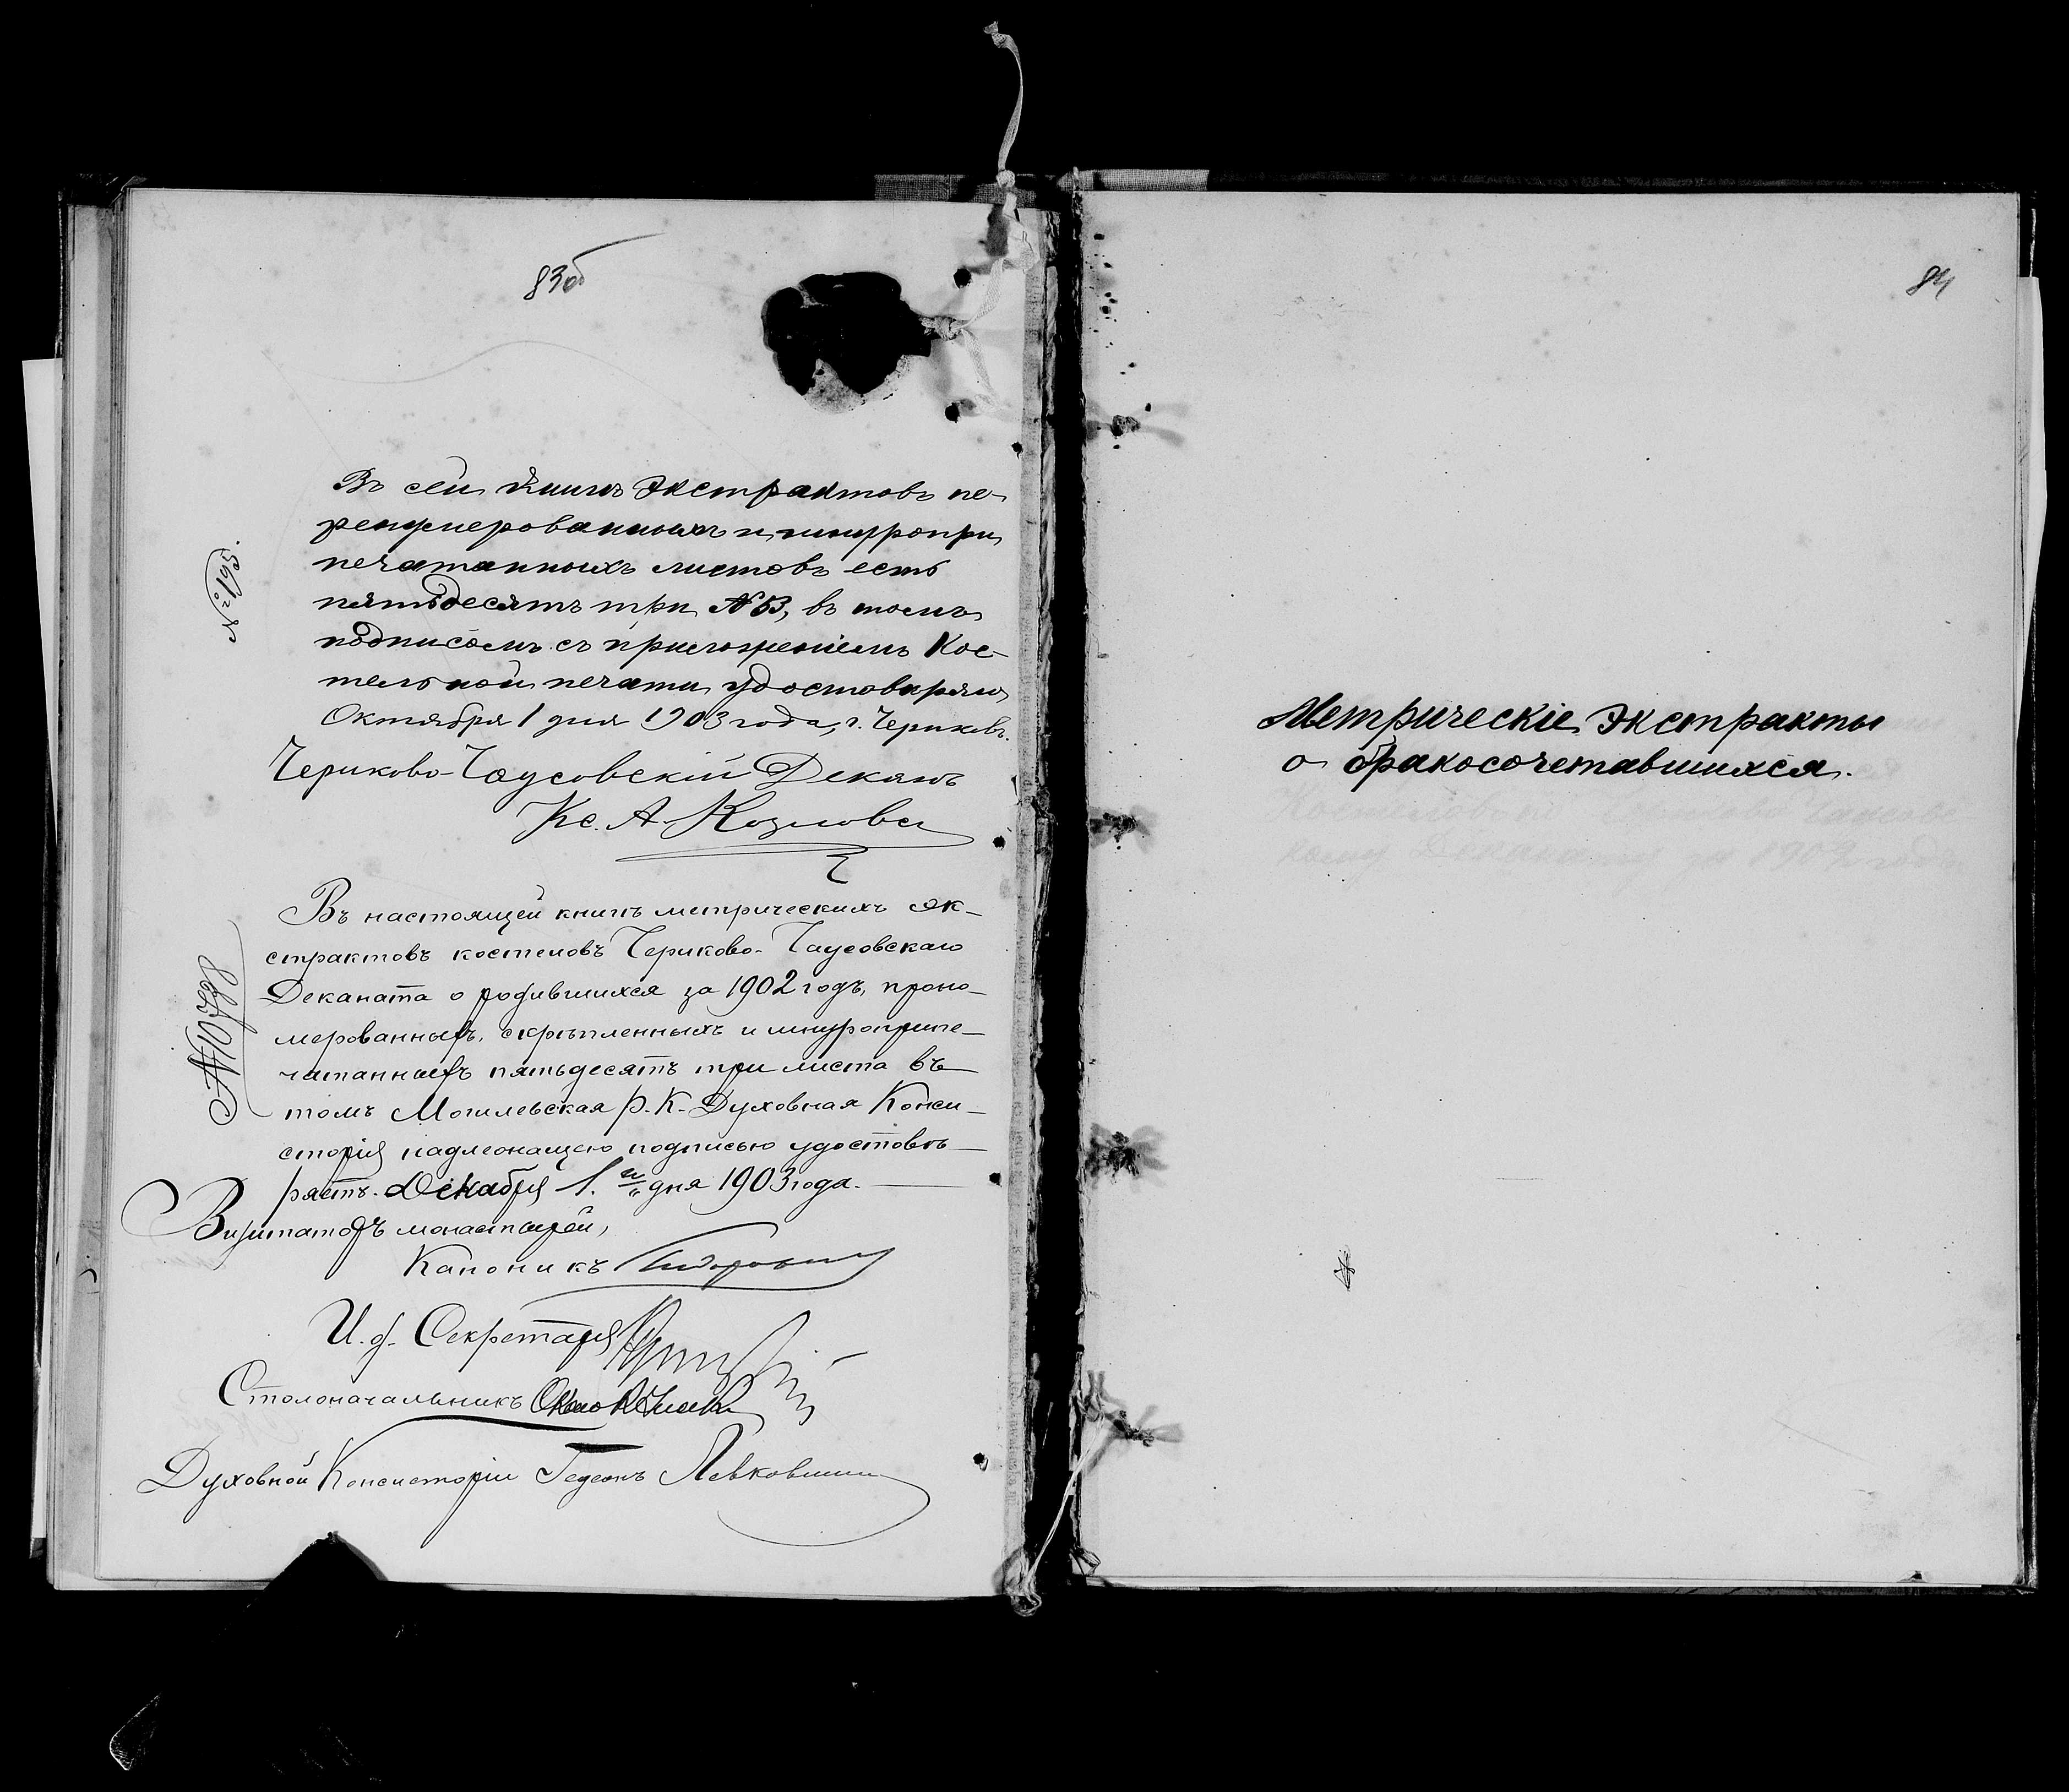 83об
Въ сей книгѣ Экстрактовъ пе-
ренумерованныхъ и шнуропри
печатанныхъ листовъ есть
пятьдесятъ три № 53, въ томъ
подписомъ съ приложеніемъ Кос-
тельной печати удостоваряю
Октября 1 дня 1903 года, г. Чериковъ.
Чериково-Чаусовскій Деканъ
Кс. А. Козлов
№ 195.
Въ настоящей книгѣ метрическихъ эк-
страктовъ костеловъ Чериково-Чаусовскаго
Деканата о родившихся за 1902 годъ, проно-
мерованныхъ, скрѣпленныхъ и шнуроприпе-
чатанныхъ пятьдесятъ три листа въ
томъ Могилевская Р. К. Духовная Конси-
сторія надлежащею подписью удостовѣ-
ряетъ. Декабря 1. дня 1903 года.
Визитаторъ монастырей,
Каноникъ
И. д. Секретаря
Столоначальникъ
Духовной Консисторіи Гедеонъ Левковичъ
84
Метрическіе Экстракты
о бракосочетавшихся.